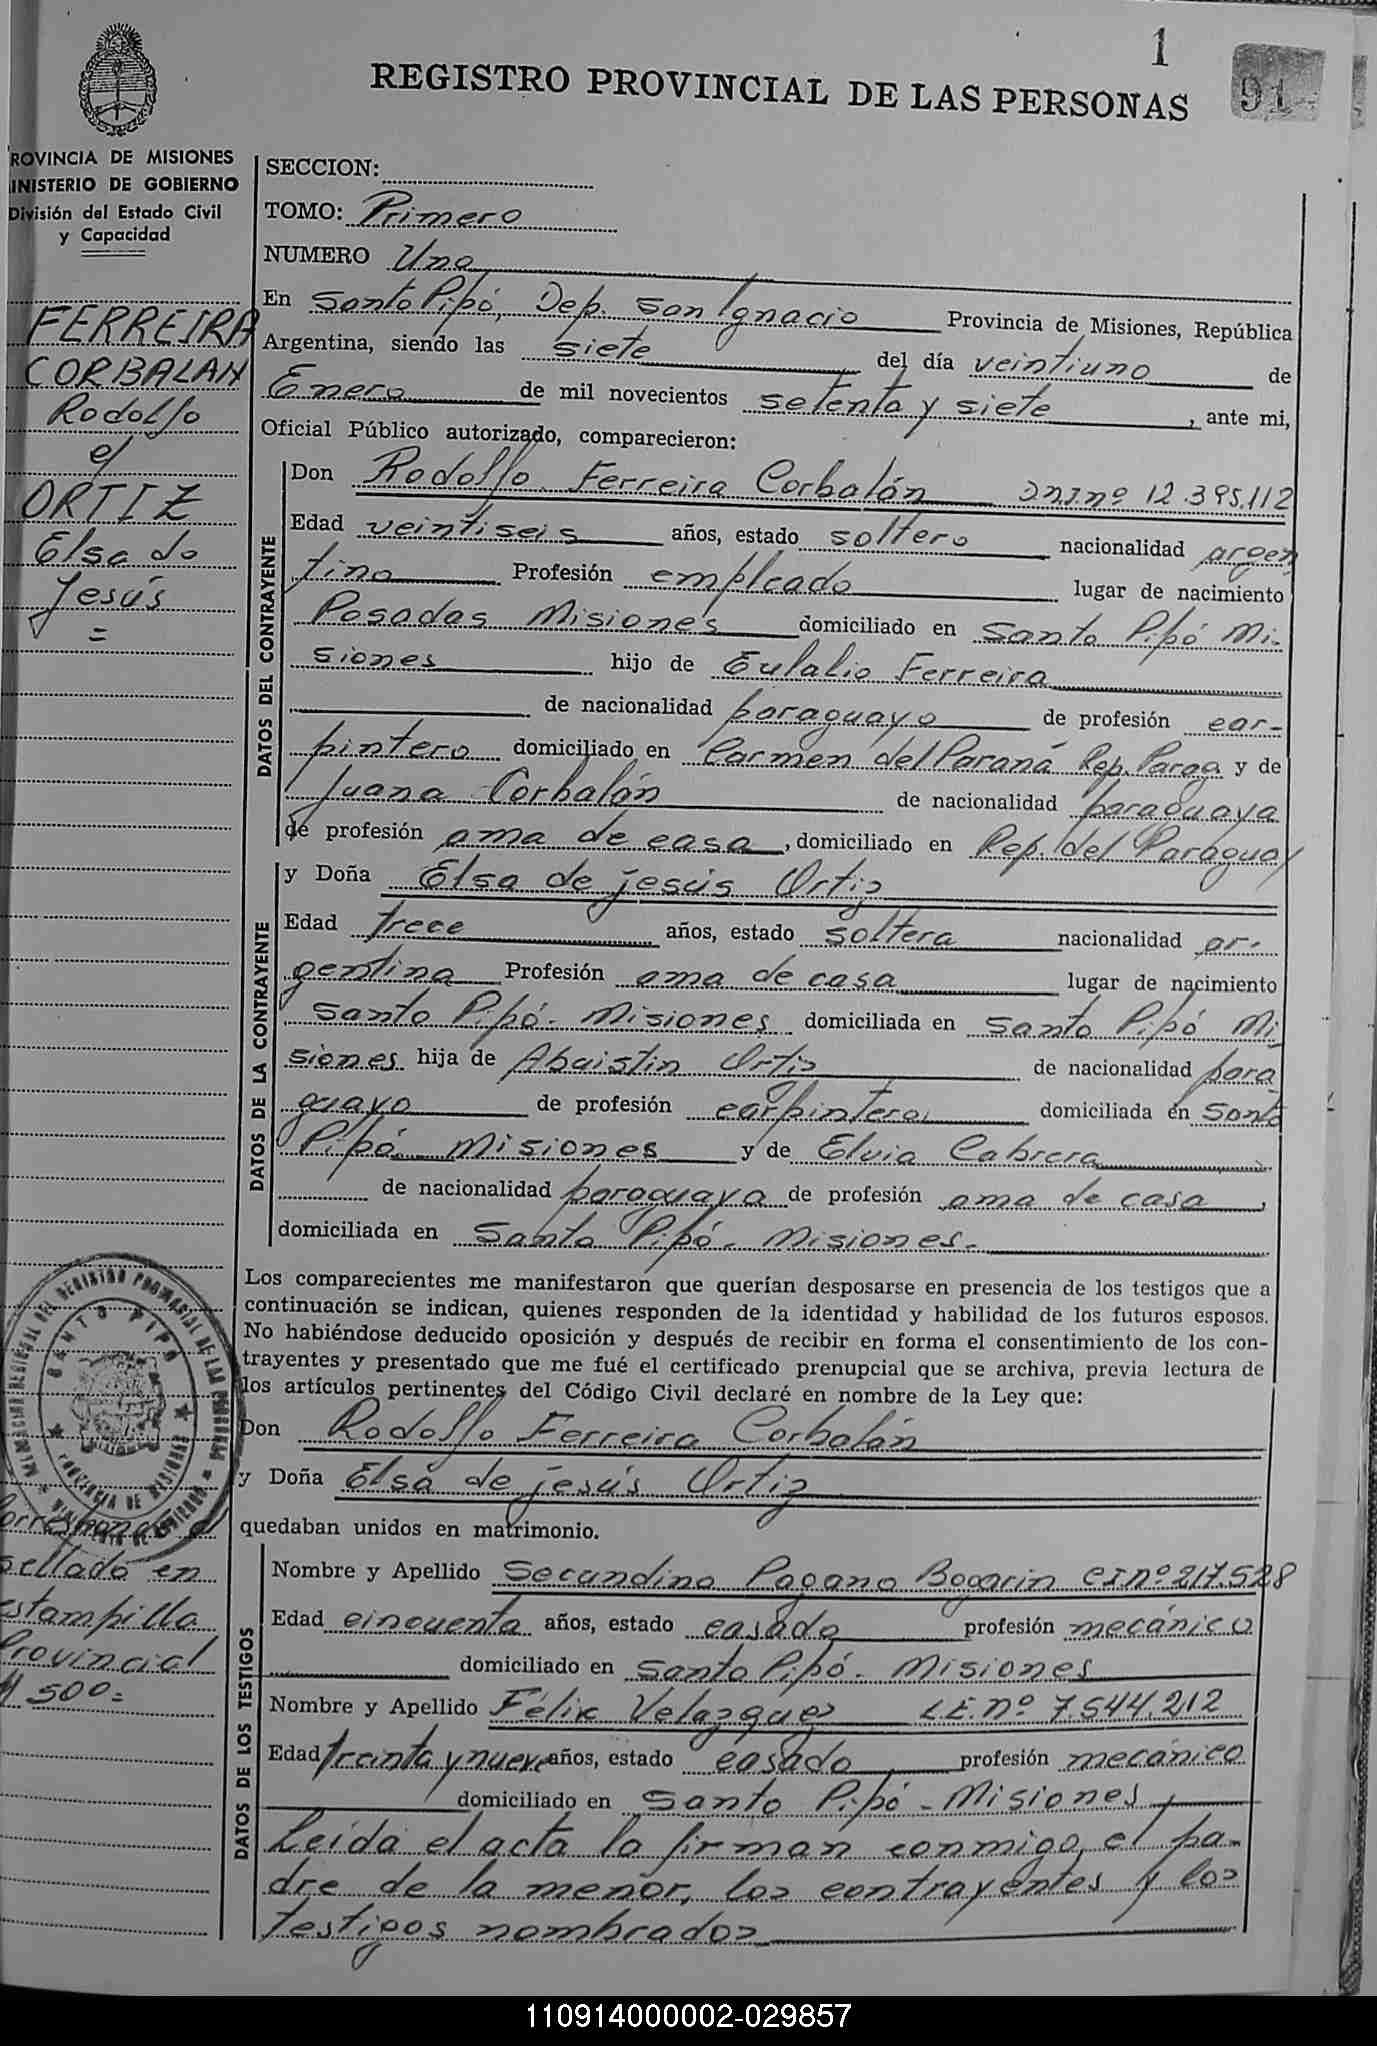 1
91
REGISTRO PROVINCIAL DE LAS PERSONAS
ROVINCIA DE MISIONES
INISTERIO DE GOBIERNO
División del Estado Civil
y Capacidad
FERREIRA
CORBALAN
Rodolfo
c/
ORTIZ
Elsa de
Jesús
=
SECCION:
TOMO: Primero
NUMERO Uno
En Santo Pipó, Dep. San Ignacio Provincia de Misiones, República
Argentina, siendo las siete del día veintiuno de
Enero de mil novecientos setenta y siete, ante mi,
Oficial Público autorizado, comparecieron:
DATOS DEL CONTRAYENTE
Don Rodolfo Ferreira Corbalán DNI nº 12.395.112
Edad veintiseis años, estado soltero nacionalidad argen
tino Profesión empleado lugar de nacimiento
Posadas Misiones domiciliado en Santo Pipó Mi-
siones hijo de Eulalio Ferreira
de nacionalidad paraguayo de profesión car-
pintero domiciliado en Carmen del Paraná Rep. Parag y de
Juana Corbalán de nacionalidad paraguaya
de profesión ama de casa, domiciliado en Rep. del Paraguay
DATOS DE LA CONTRAYENTE
y Doña Elsa de jesús Ortiz
Edad trece años, estado soltera nacionalidad ar-
gentina Profesión ama de casa lugar de nacimiento
Santo Pipó - Misiones domiciliada en Santo Pipó Mi
siones hija de Ortiz de nacionalidad para
guayo de profesión carpintero domiciliada en Santo
Pipó Misiones y de Elvia Cabrera
de nacionalidad paraguaya de profesión ama de casa,
domiciliada en Santo Pipó - Misiones.-
Los comparecientes me manifestaron que querían desposarse en presencia de los testigos que a
continuación se indican, quienes responden de la identidad y habilidad de los futuros esposos.
No habiéndose deducido oposición y después de recibir en forma el consentimiento de los con-
trayentes y presentado que me fué el certificado prenupcial que se archiva, previa lectura de
los artículos pertinentes del Código Civil declaré en nombre de la Ley que:
Don Rodolfo Ferreira Corbalán
y Doña Elsa de jesús Ortiz
quedaban unidos en matrimonio.
SANTO PIPO
PROVINCIA DE MISIONES
Corresponde
sellado en
estampilla
Provincial
$ 500=
DATOS DE LOS TESTIGOS
Nombre y Apellido Secundino Pagano Bogarin CI nº 217.528
Edad cincuenta años, estado casado profesión mecánico
domiciliado en Santo Pipó - Misiones
Nombre y Apellido Félix Velazquez L.E. nº 7.544.212
Edad treinta y nueve años, estado casado profesión mecánico
domiciliado en Santo Pipó - Misiones
Leida el acta la firman conmigo, el pa-
dre de la menor, los contrayentes y los
testigos nombrados
110914000002-029857